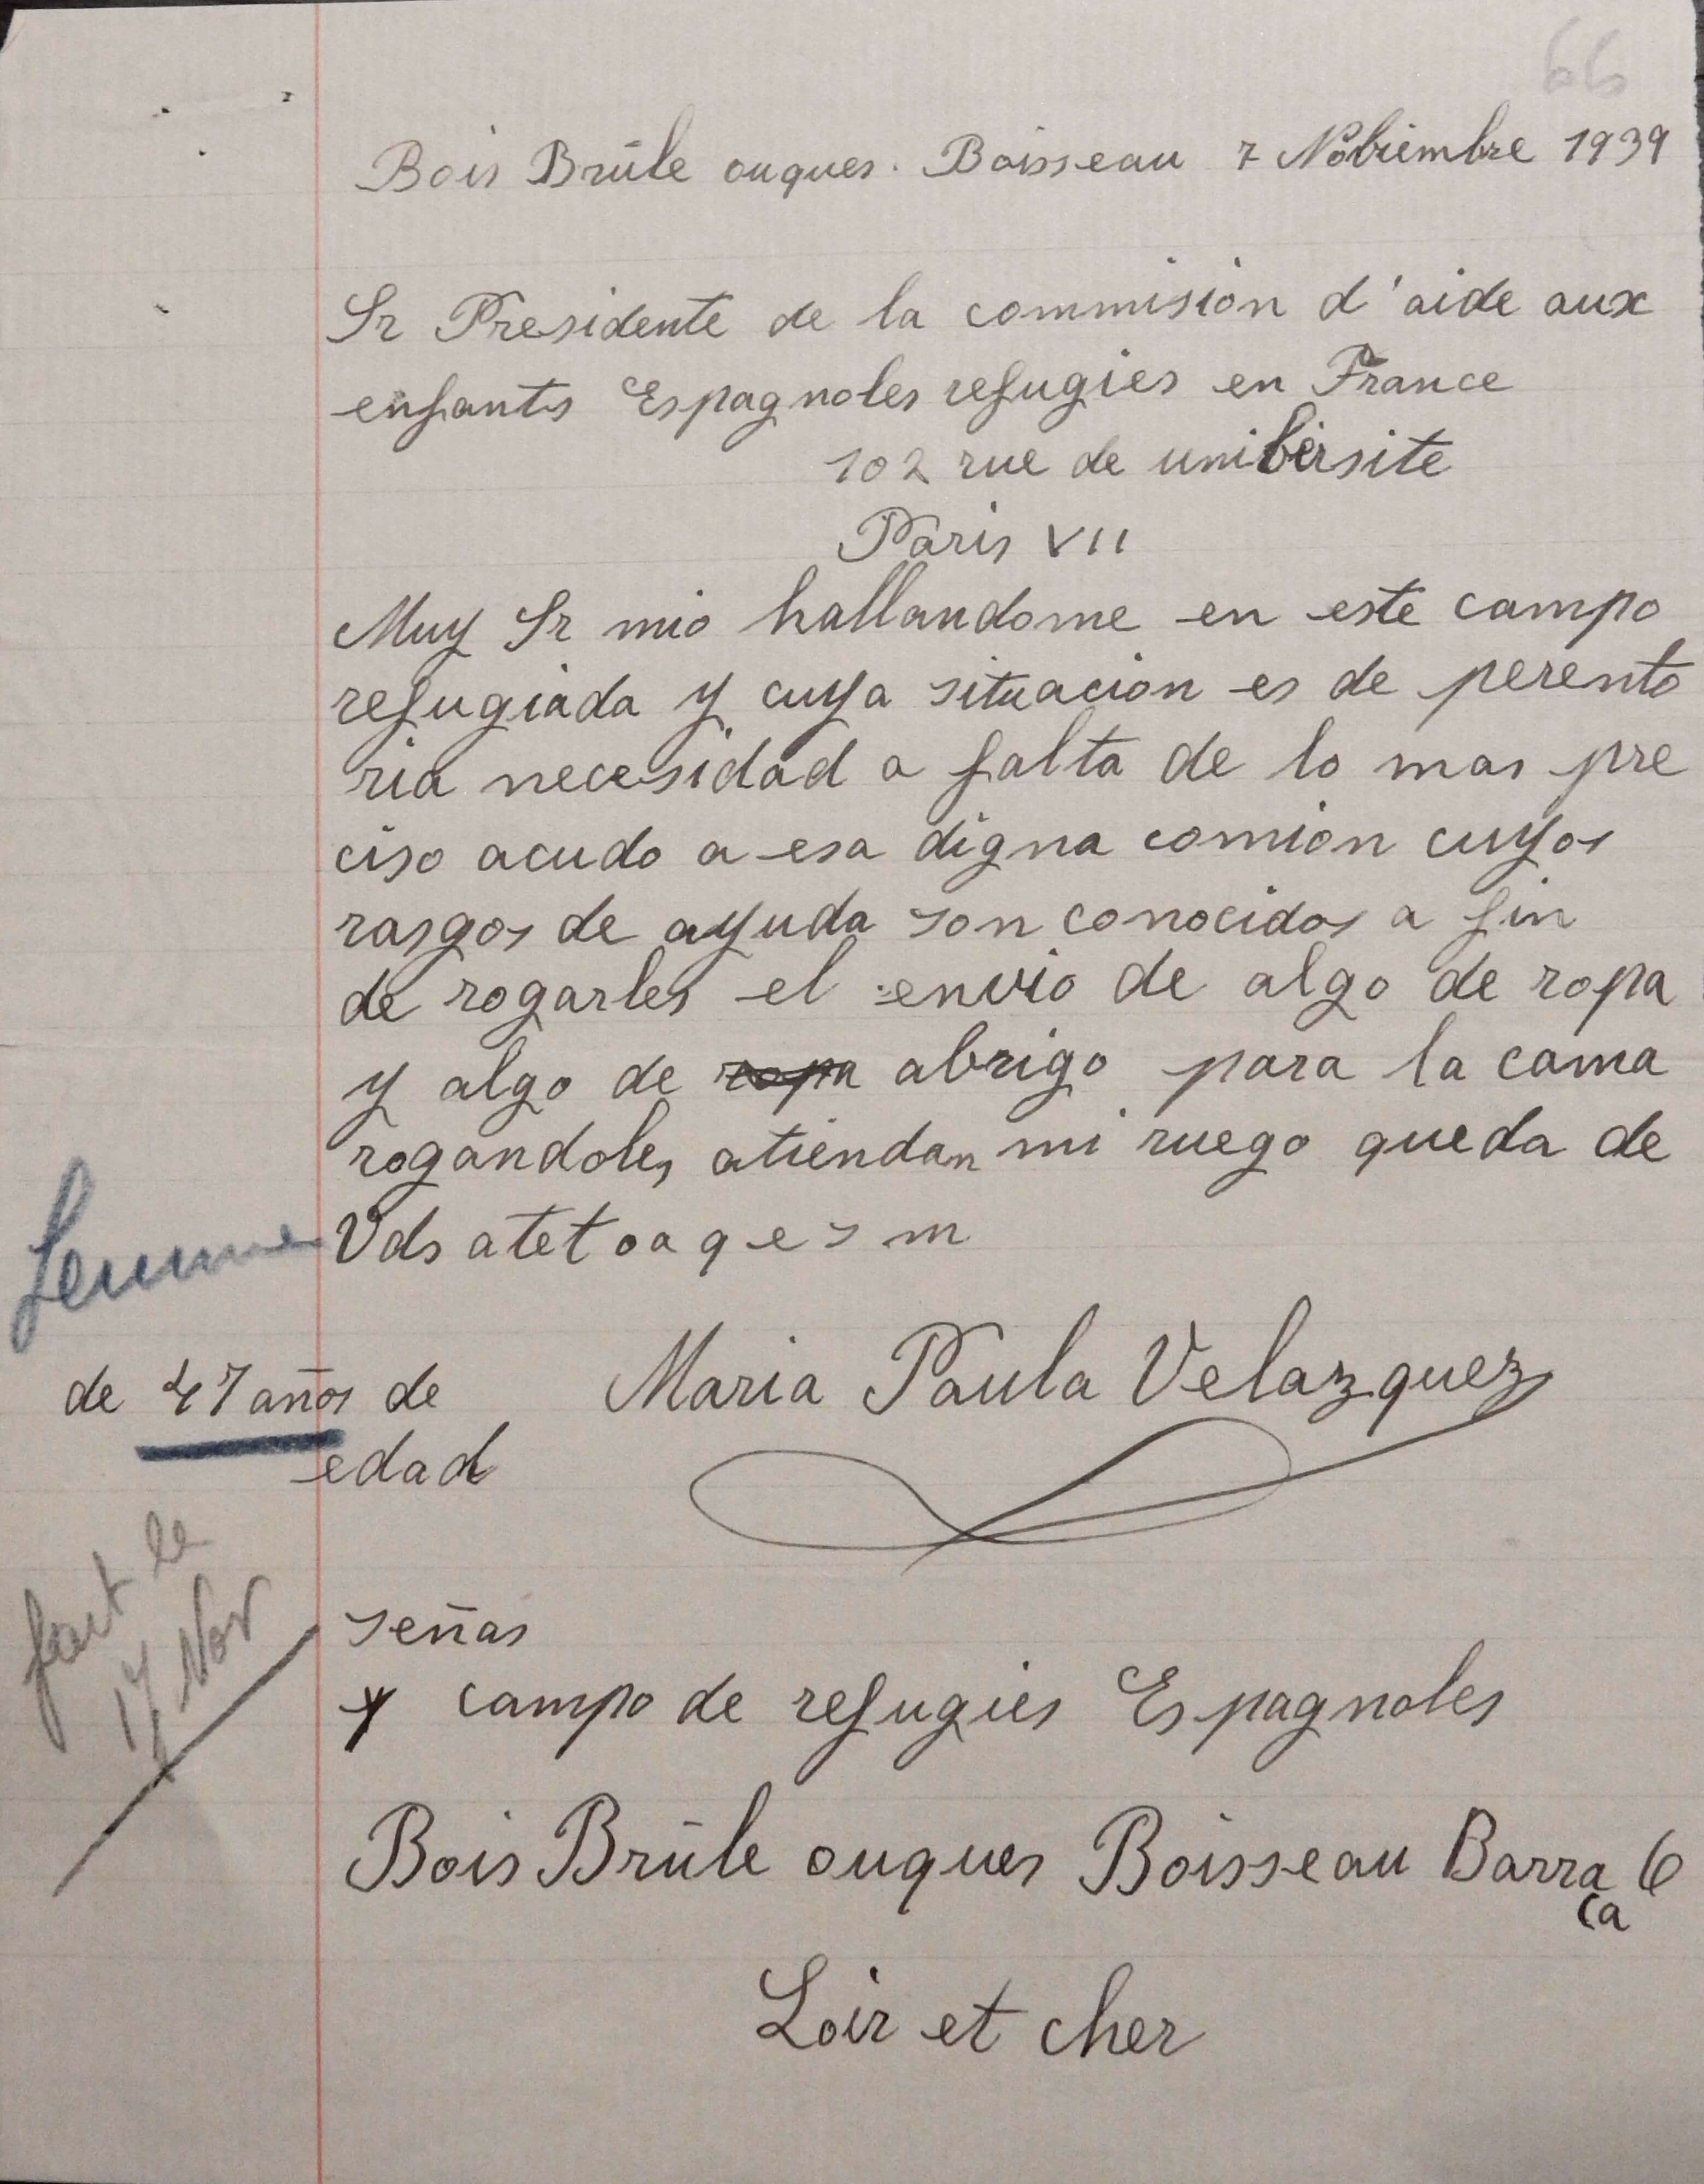 66
Bois Brûle ouques. Boisseau 7 Nobiembre 1939
Sr Presidente de la commision d'aide aux
enfants Espagnoles refugies en France
102 rue de unibersite
Paris VII
Muy Sr mio hallandome en este campo
refugiada y cuya situacion es de perento
ria necesidad a falta de lo mas pre
ciso acudo a esa digna comion cuyos
rasgos de ayuda son conocidos a fin
de rogarles el envio de algo de ropa
y algo de ropa abrigo para la cama
rogandoles atiendan mi ruego queda de
Vds atet o a q e s m
femme
Maria Paula Velazquez
de 47 años de
edad
fait le
17 Nov
señas
campo de refugies Espagnoles
Bois Brûle ouques Boisseau Barra 6
ca
Loir et cher